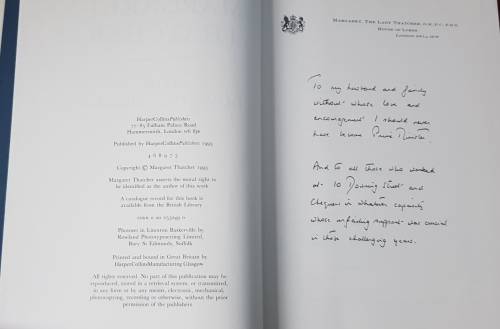 HarperCollinsPublishers
77–85 Fulham Palace Road
Hammersmith, London W6 8JB
Published by HarperCollinsPublishers 1993
Copyright © Margaret Thatcher 1993
Margaret Thatcher asserts the moral right to
be identified as the author of this work
A catalogue record for this book is
available from the British Library
ISBN 0 00
Photoset in Linotron Baskerville by
Rowland Phototypesetting Limited,
Bury St Edmunds, Suffolk
Printed and bound in Great Britain by
HarperCollinsManufacturing Glasgow
All rights reserved. No part of this publication may be
reproduced, stored in a retrieval system, or transmitted,
in any form or by any means, electronic, mechanical,
photocopying, recording or otherwise, without the prior
permission of the publishers.
MARGARET, THE LADY THATCHER, O.M., P.C., F.R.S.
HOUSE OF LORDS
LONDON SW1A 0PW
To my husband and family
without whose love and
encouragement I should never
have become Prime Minister.
And to all those who worked
at 10 Downing Street and
Chequers in whatever capacity
whose unfailing support was crucial
in those challenging years.